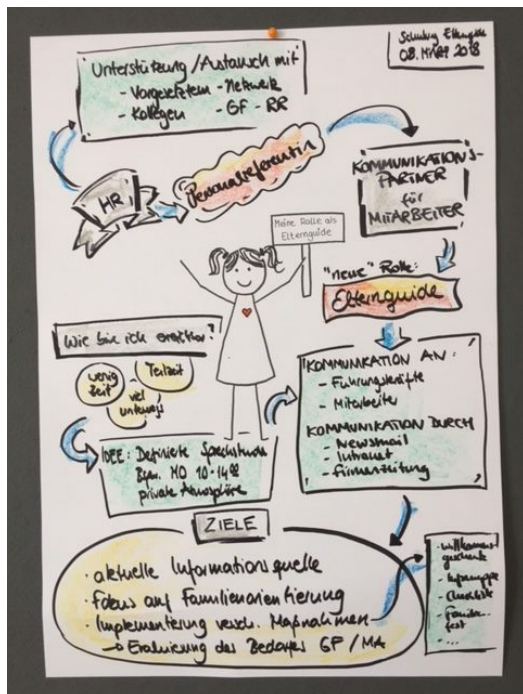 Schulung Elternguide
08. MÄRZ 2018
Unterstützung / Austausch mit
- Vorgesetztem - Netzwerk
- Kollegen - GF - RR
HR
Personalreferentin
KOMMUNIKATIONS-
PARTNER
für
MITARBEITER
Meine Rolle als
Elternguide
"neue" Rolle:
Elternguide
Wie bin ich erreichbar?
wenig
Zeit
Teilzeit
viel
unterwegs
IDEE: Definierte Sprechstunde
Bspw. MO 10-14 00
private Atmosphäre
KOMMUNIKATION AN:
- Führungskräfte
- Mitarbeiter
KOMMUNIKATION DURCH
- Newsmail
- Intranet
- Firmenzeitung
ZIELE
· aktuelle Informationsquelle
· Fokus auf Familienorientierung
· Implementierung versch. Maßnahmen
→ Evaluierung des Bedarfes GF / MA
· Willkommens-
geschenk
· Checkliste
· Familien-
fest
· ...